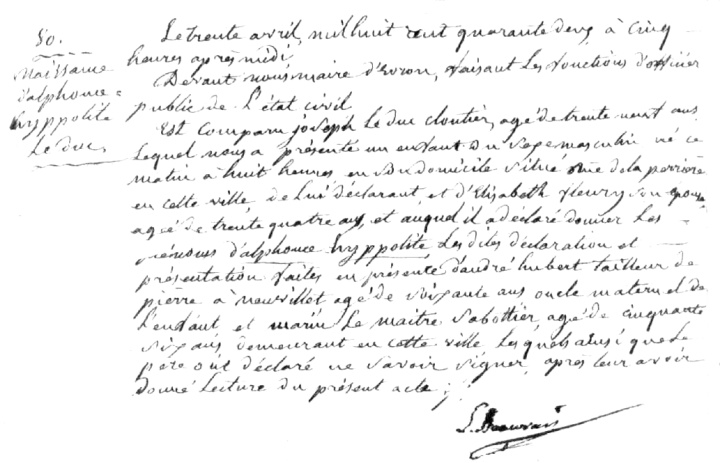 50.
Naissance
d'alphonce
hyppolite
Le duc,
Le trente avril, mil huit cent quarante deux à cinq
heures après midi,
Devant nous, maire d'Evron, faisant les fonctions d'officier
public de L'état civil
Est Comparu joseph Le duc cloutier, agé de trente neuf ans
Lequel nous a présenté un enfant du Sexe masculin né ce
matin à huit heures, en Son domicile Situé rue de la perrière
en cette ville, de Lui déclarant, et d'Elizabeth fleury, Son épouse
agée de trente quatre ans, et auquel il a déclaré donner Les
prénoms d'alphonce hyppolite Les dites déclaration et
présentation faites en présence d'andré hubert tailleur de
pierre à neuvillet agé de Soixante ans oncle maternel de
L'enfant, et marin Le maitre Sabottier, agé de cinquante
Six ans demeurant en cette ville Les quels ainsi que Le
père ont déclaré ne Savoir Signer, après leur avoir
donné Lecture du présent acte;
L. Beauvais